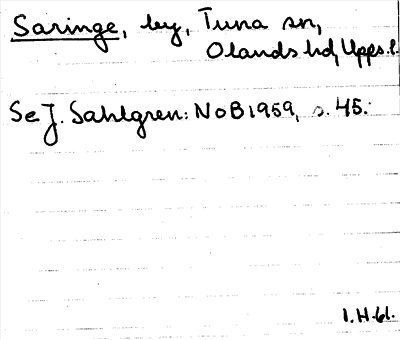 Saringe, by, Tuna sn,
Olands hd, Upps. l.
Se J. Sahlgren: NoB 1959, s. 45.
I.H. 61.